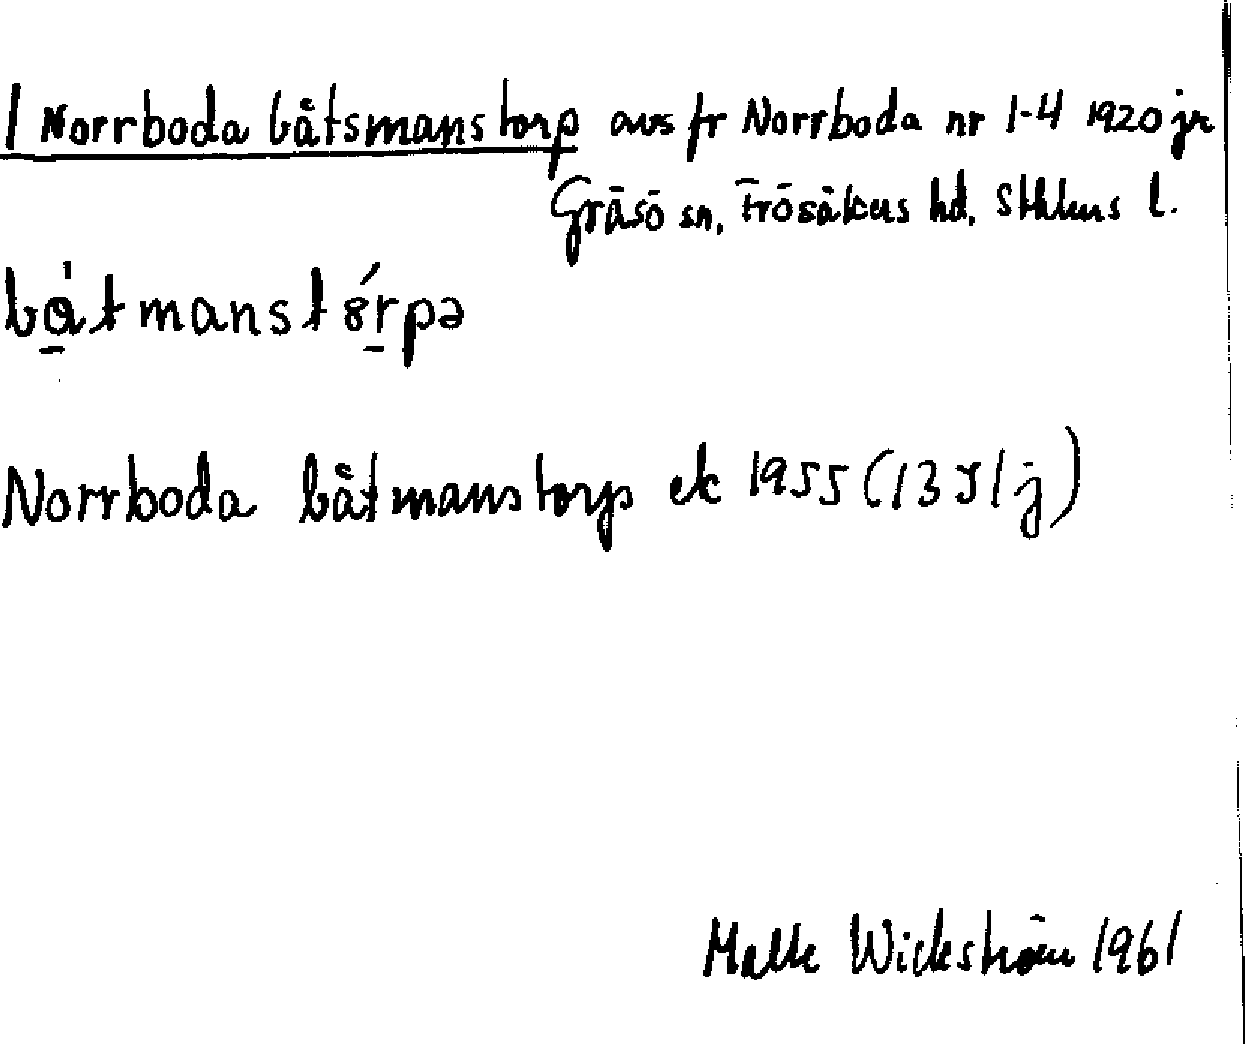 / Norrboda båtsmanstorp avs fr Norrboda nr 1-4 1920 jr
Gräsö sn, Frösåkers hd, Sthlms l.
bå̀tmanstórpə
Norrboda båtmanstorp ek 1955 (13 J 1 j)
Malte Wickström 1961